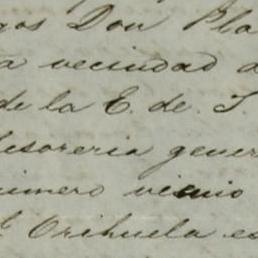 gos Don Pla
a vecindad d
de la E. de. T
tesoreria gener
rimero vecino
Orihuela es